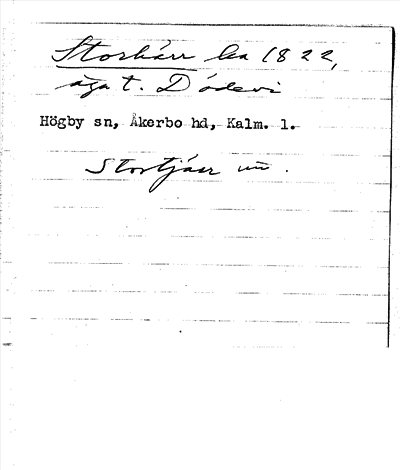 Storkärr lha 1822,
äga t. Dödevi
Högby sn, Åkerbo hd, Kalm. l.
Stortjärr un.